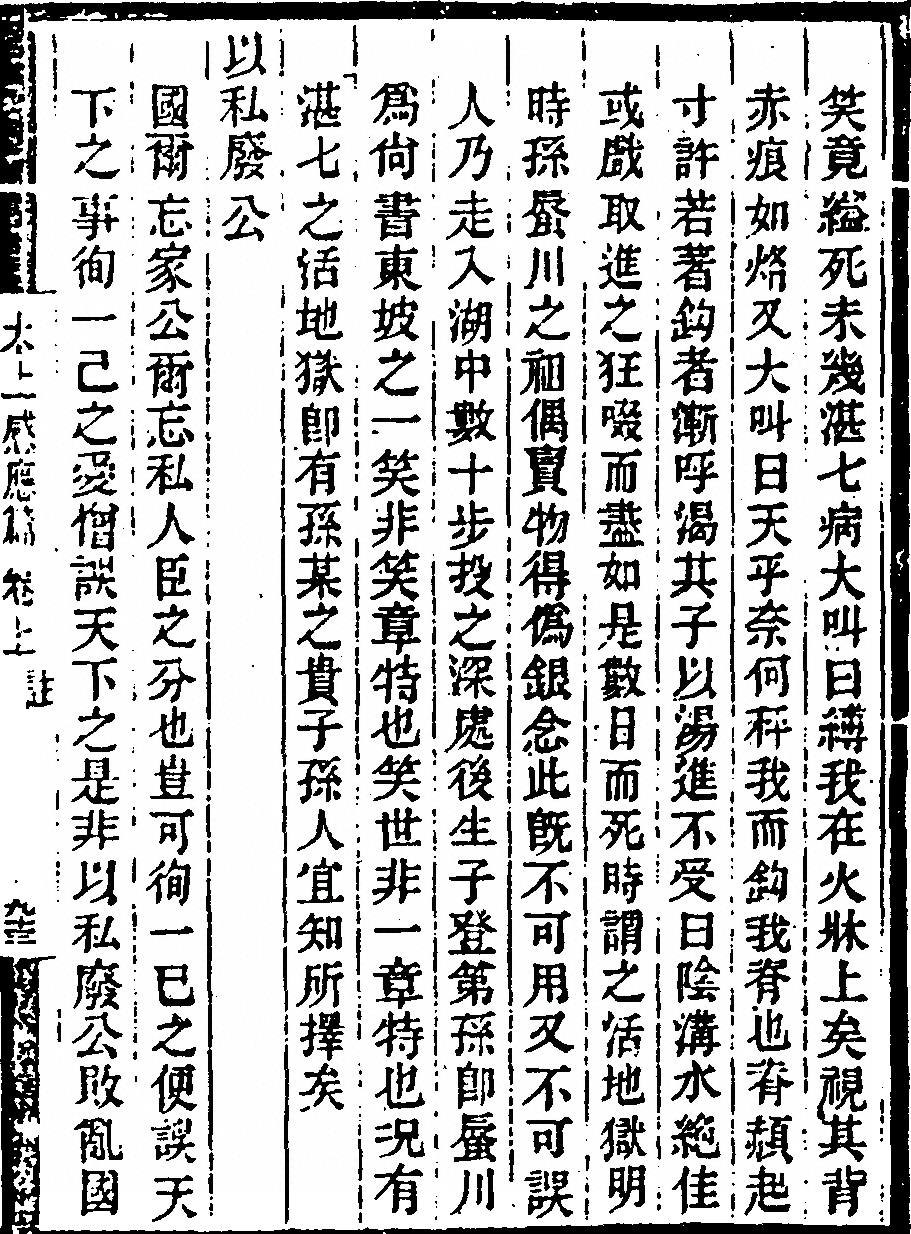 笑竟縊死未幾湛七病大叫曰縛我在火牀上矣視其背
赤痕如烙又大叫曰天乎奈何秤我而鈎我脊也脊頳起
寸許若著鈎者漸呼渴其子以湯進不受曰陰溝水絶佳
或戲取進之狂啜而盡如是數日而死時謂之活地獄明
時孫蜃川之祖偶賣物得僞銀念此旣不可用又不可誤
人乃走入湖中數十步投之深處後生子登第孫卽蜃川
爲尙書東坡之一笑非笑章特也笑世非一章特也况有
湛七之活地獄卽有孫某之貴子孫人宜知所擇矣
以私廢公
國爾忘家公爾忘私人臣之分也豈可徇一已之便誤天
下之事徇一己之愛憎誤天下之是非以私廢公敗亂國
太上感應篇 卷上 註 九十三